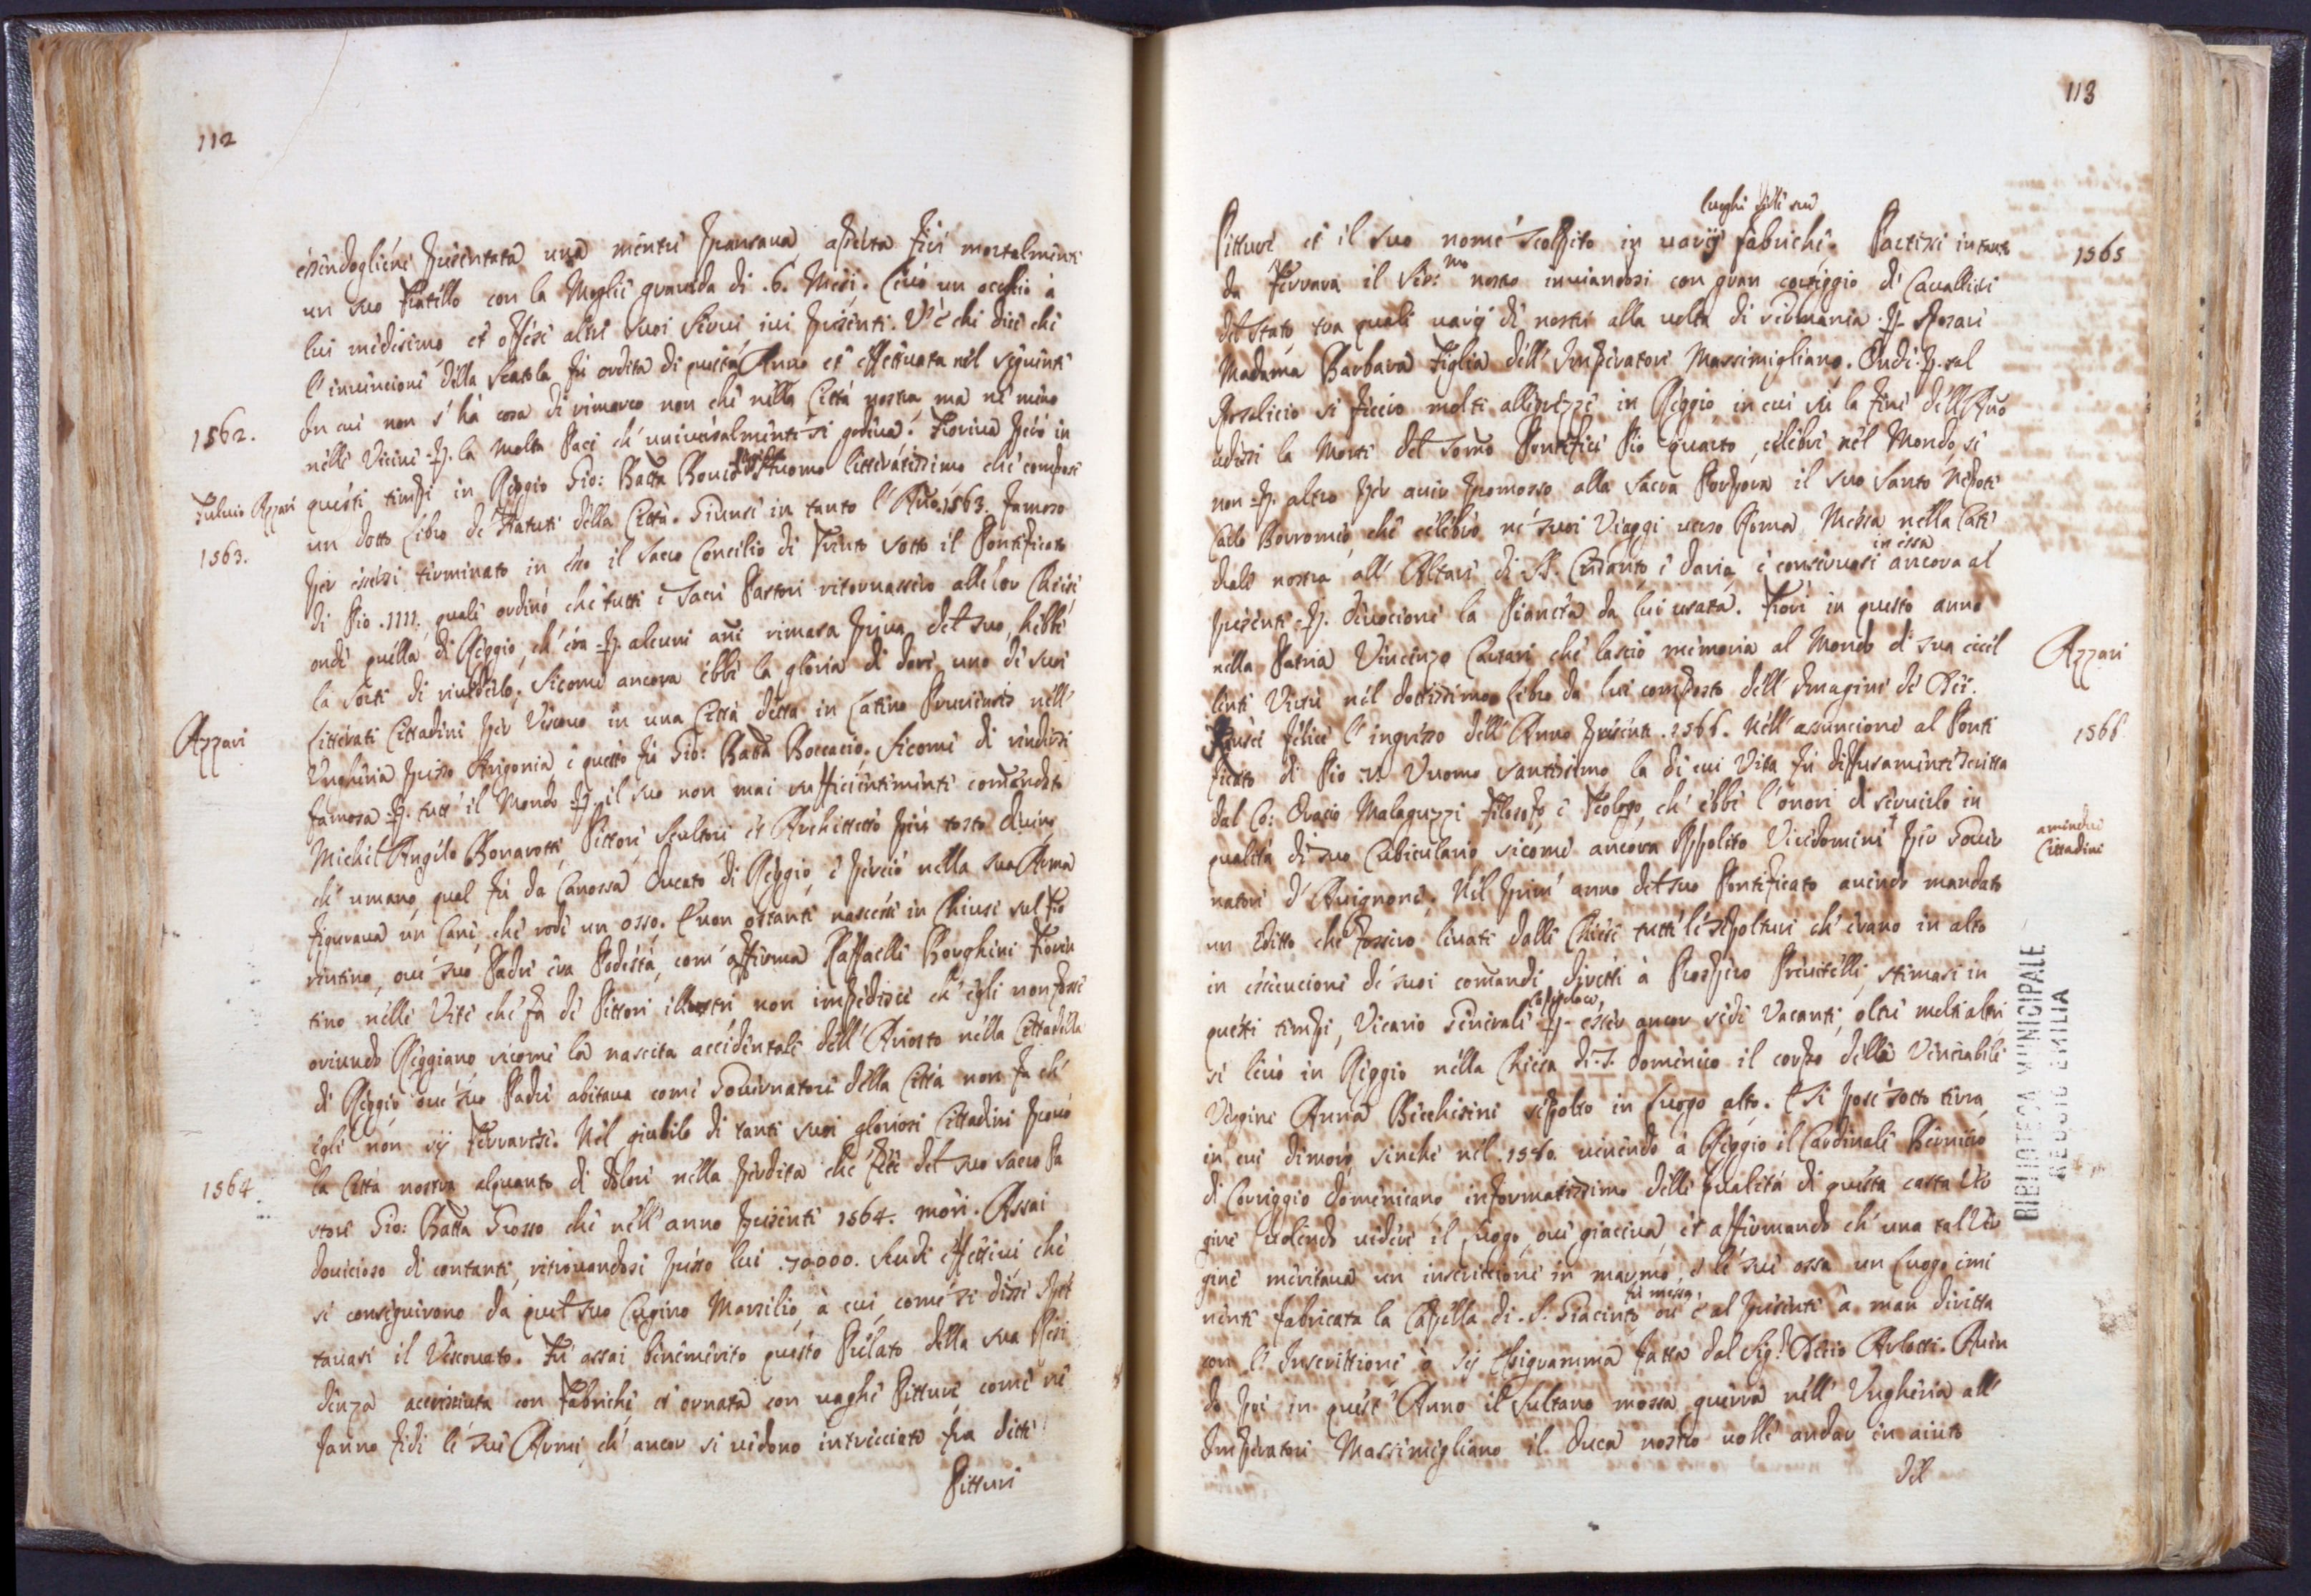 112
essendogliene presentata una mentre pransava, aperta ferì mortalmente
un suo Fratello con la Moglie gravida di .6. Mesi. Levò un occhio à
lui medesimo et offese altri suoi Servi ivi presenti. V'è chi dice che
l'invencione della Scatola fù ordita di quest'Anno et effettuata nel seguente
1562.
In cui non s'hà cosa di rimarco non che nella Città nostra ma ne meno
nelle Vicine p. la molta Pace ch'universalmente si godeva. Fioriva però in
Fulvio Azzari
questi tempi in Reggio Gio: Batta huomo litteratissimo che compose
un dotto Libro de Statuti della Città. Giunse in tanto l'Año 1563. famoso
1563.
per essersi terminato in esso il Sacro Concilio di Trento sotto il Pontificato
di Pio .IIII. quale ordinò che tutti i Sacri Pastori ritornassero alle lor Chiese
onde quella di Reggio, ch'era p. alcuni añi rimasa priva del suo, hebbe
la sorte di rivederlo; Sicome ancora ebbe la gloria di dare uno de suoi
Litterati Cittadini per Vescovo in una Città detta in Latino nell'
Azzari
Ungheria presso Strigonia, e questo fù Gio: Batta Boccacio, Sicome di rendersi
famosa p. tutt'il Mondo p. il suo non mai sufficientemente comendato
Michel Angelo Bonarotti, Pittore, Scultore et Architetto più tosto divino
ch'umano, qual fù da Canossa Ducato di Reggio, e perciò nella sua Arma
figurava un Cane che rode un osso. E non ostante nascesse in Chiusi sul Fio
rentino, ove suo Padre era Podestà, com'afferma Raffaelle Borghini Fioren
tino nelle Vite che fà de Pittori illustri non impedisce ch'egli non fosse
oriundo Reggiano, sicome la nascita accidentale dell'Ariosto nella Cittadella
di Reggio ove suo Padre abitava come Governatore della Città non fa ch'
egli non sij Ferrarese. Nel giubilo di tanti suoi gloriosi Cittadini provò
la Città nostra alquanto di dolore nella perdita che fece del suo sacro Pa
1564.
store Gio: Batta Grosso che nell'anno presente 1564. morì. Assai
dovicioso di contanti, ritrovandosi presso lui .70000. Scudi effettivi, che
si conseguirono da quel suo Cugino Marsilio, à cui, come si disse spet
tavasi il Vescovato. Fù assai benemerito questo Prelato della sua Resi
denza accresciuta con Fabriche, et ornata con vaghe Pitture, come ne
fanno fede le sue Arme, ch'ancor si vedono intrecciate fra dette
Pitture
113
luoghi delle sue
Pitture et il suo nome scolpito in varij fabriche. Partissi in tanto
1565
da Ferrara il Ser:mo nostro inviandosi con gran corteggio di Cavallieri
del Stato, tra quali varij de nostri alla volta di Germania p. sposare
Madama Barbara Figlia dell'Imperatore Massimigliano. Onde p. tal
sposalicio si fecero molte allegrezze in Reggio, in cui sù la fine dell'Año
udissi la Morte del Somo Pontefice Pio Quarto, celebre nel Mondo, se
non p. altro per aver promosso alla Sacra Porpora il suo Santo Nepote
Carlo Borromeo, che celebrò ne suoi Viaggi verso Roma Messa nella Cate
drale nostra all'Altare di SS. Crisanto, e Daria, e conservasi in essa ancora al
presente p. divocione la Pianeta da lui usata. Fiorì in questo anno
nella Patria Vincenzo Cartari che lasciò memoria al Mondo di sua eccel
Azzari
lente Virtù nel dottissimo Libro da lui composto dell'Imagini de Dei.
felice l'ingresso dell'Anno presente .1566. Nell'assuncione al Ponti
1566.
ficato di Pio .V. Uomo santissimo la di cui Vita fù diffusamente scritta
dal Co: Oracio Malaguzzi Filosofo, e Teologo, ch'ebbe l'onore di servirlo in
qualità di suo Cubiculario, sicome ancora Ippolito Vicedomini † per Gover
amendue
Cittadini
natore d'Avignone. Nel prim'anno del suo Pontificato avendo mandato
un Editto che fossero levati dalle Chiese tutti le sepolture ch'erano in alto
in esecucione de suoi comandi diretti à Prospero Previtelli, stimasi in
questi tempi, Vicario Generale Capitolare, p. esser ancor sede Vacante, oltre molti altri
si levò in Reggio nella Chiesa di S. Domenico il corpo della Venerabile
Vergine Anna Bicchierini sepolto in luogo alto. E si pose sotto terra,
in cui dimorò sinche nel .1580. venendo à Reggio il Cardinale Bernerio
di Correggio Domenicano, informatissimo delle qualità di questa casta Ver
gine volendo vedere il luogo, ove giaceva, et affermando ch'una tal Ver
gine meritava un inscrittione in marmo, e le sue ossa un luogo emi
nente fabricata la Capella di S. Giacinto fù messa, ov'è al presente à man diritta
con l'Inscrittione ò sij Epigramma fatta dal Sig.r Decio Arlotti. Aven
do poi in quest'Anno il Sultano mossa guerra nell'Ungheria all'
Imperatore Massimigliano il Duca nostro volle andar in aiuto
del
BIBLIOTECA MUNICIPALE
REGGIO EMILIA